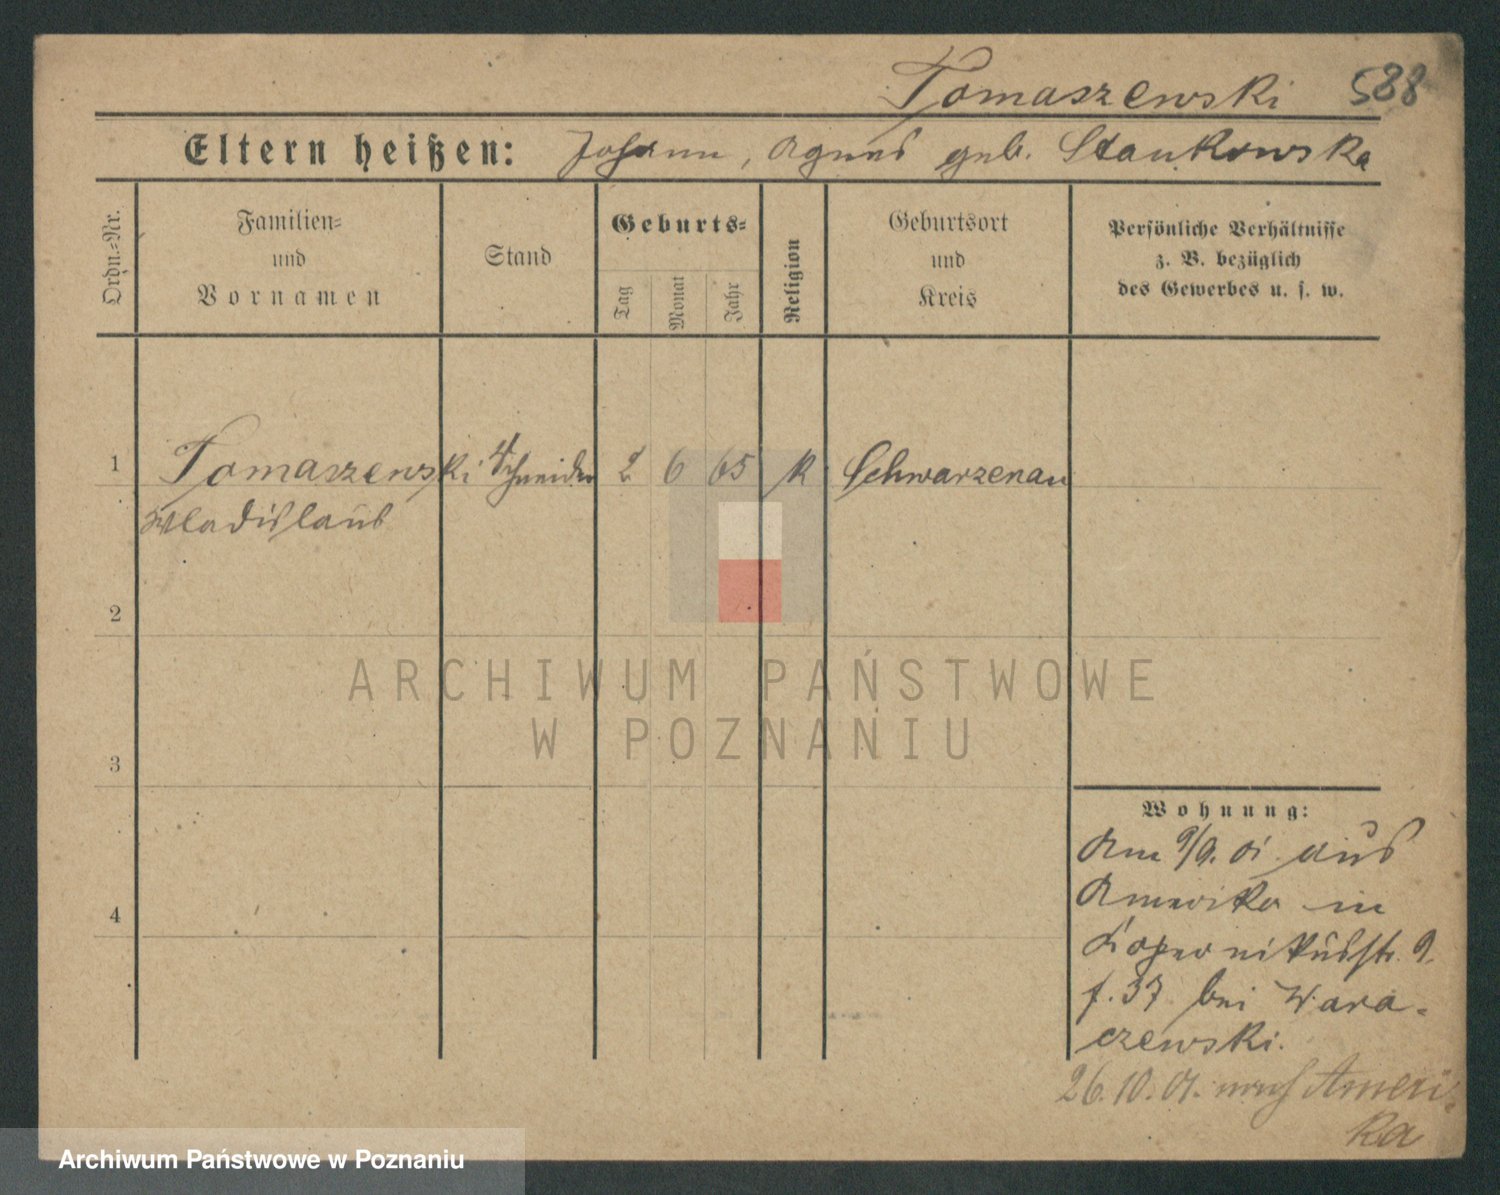 Tomaszewski 588
Eltern heißen: Johann, Agnes geb. Stankowska
Ordn.-Nr.
Familien-
und
Vornamen
Stand
Geburts-
Tag
Monat
Jahr
Religion
Geburtsort
und
Kreis
Persönliche Verhältnisse
z. B. bezüglich
des Gewerbes u. s. w.
1 Tomaszewski Schneider 2 6 65 k Schwarzenau
Wladislaus
2
ARCHIWUM PAŃSTWOWE
W POZNANIU
3
Wohnung:
Am 9/9. 01 aus
Amerika in
Kopernikusstr. 9.
f. 37 bei Wara-
czewski.
4
26.10.01. nach Ameri-
ka
Archiwum Państwowe w Poznaniu